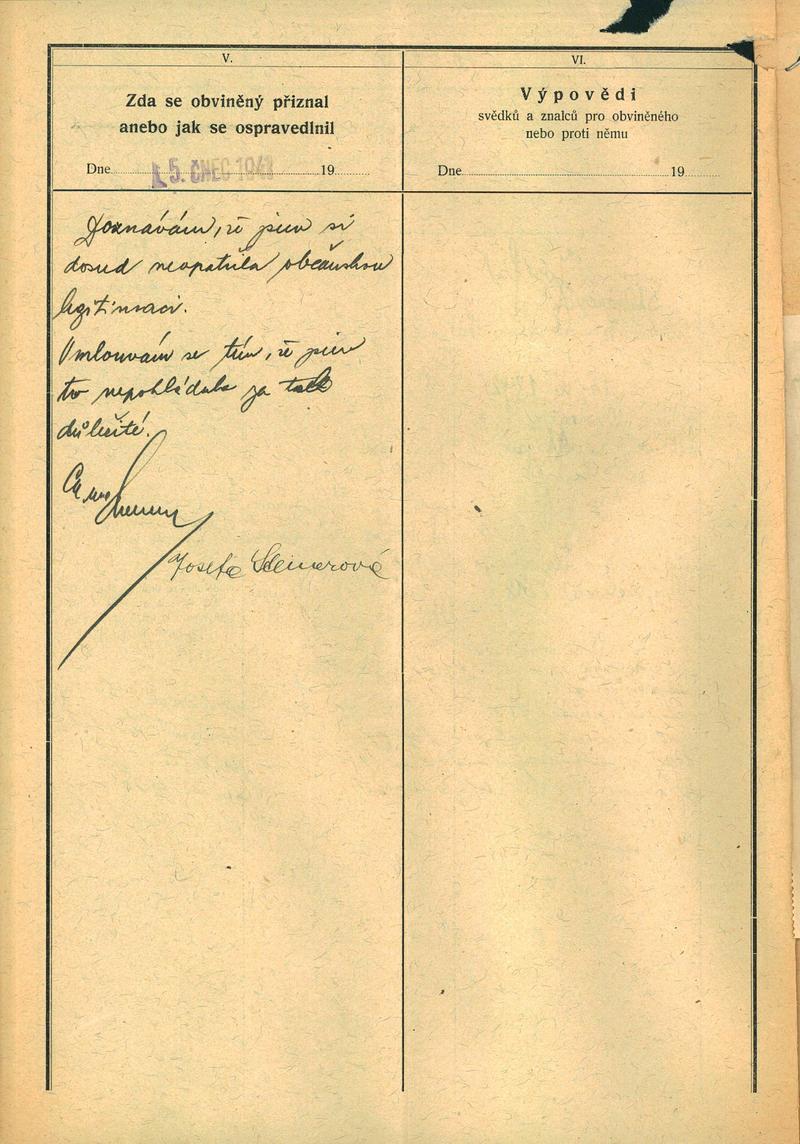 V.
Zda se obviněný přiznal
anebo jak se ospravedlnil
Dne 15. ČNEC 194 19
Doznávám, že jsem si
dosud neopatřila občanskou
legitimaci.
Omlouvám se tím, že jsem
to nepokládala za tak
důležité.
Josefa
VI.
Výpovědi
svědků a znalců pro obviněného
nebo proti němu
Dne 19